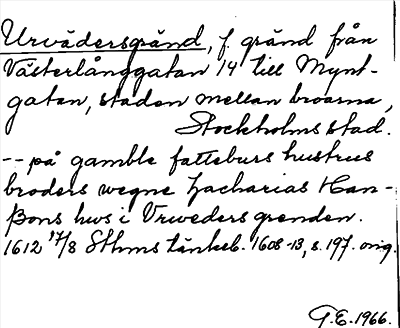 Urvädersgränd, f. gränd från
Västerlånggatan 14 till Mynt-
gatan, staden mellan broarna,
Stockholms stad.
-- på gamble fatteburs hustrus
broders wegne Zacharias Han-
ßons hws i Vrweders grenden.
1612 17/8 Sthms tänkeb. 1608-13, s. 197. orig.
G.E. 1966.